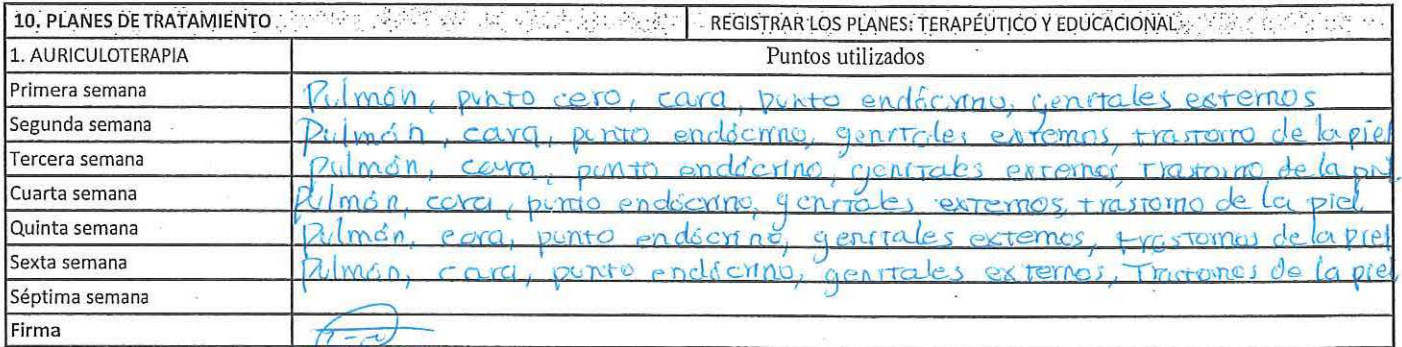 10. PLANES DE TRATAMIENTO REGISTRAR LOS PLANES: TERAPÉUTICO Y EDUCACIONAL
1. AURICULOTERAPIA Puntos utilizados
Primera semana Pulmón, punto cero, cara, punto endócrino, genitales externos
Segunda semana Pulmón, cara, punto endócrino, genitales externos, trastorno de la piel
Tercera semana Pulmón, cara, punto endócrino, genitales externos, trastorno de la piel.
Cuarta semana Pulmón, cara, punto endócrino, genitales externos, trastorno de la piel
Quinta semana Pulmón, cara, punto endócrino, genitales externos, trastornos de la piel
Sexta semana Pulmón, cara, punto endócrino, genitales externos, Trastornos de la piel
Séptima semana
Firma